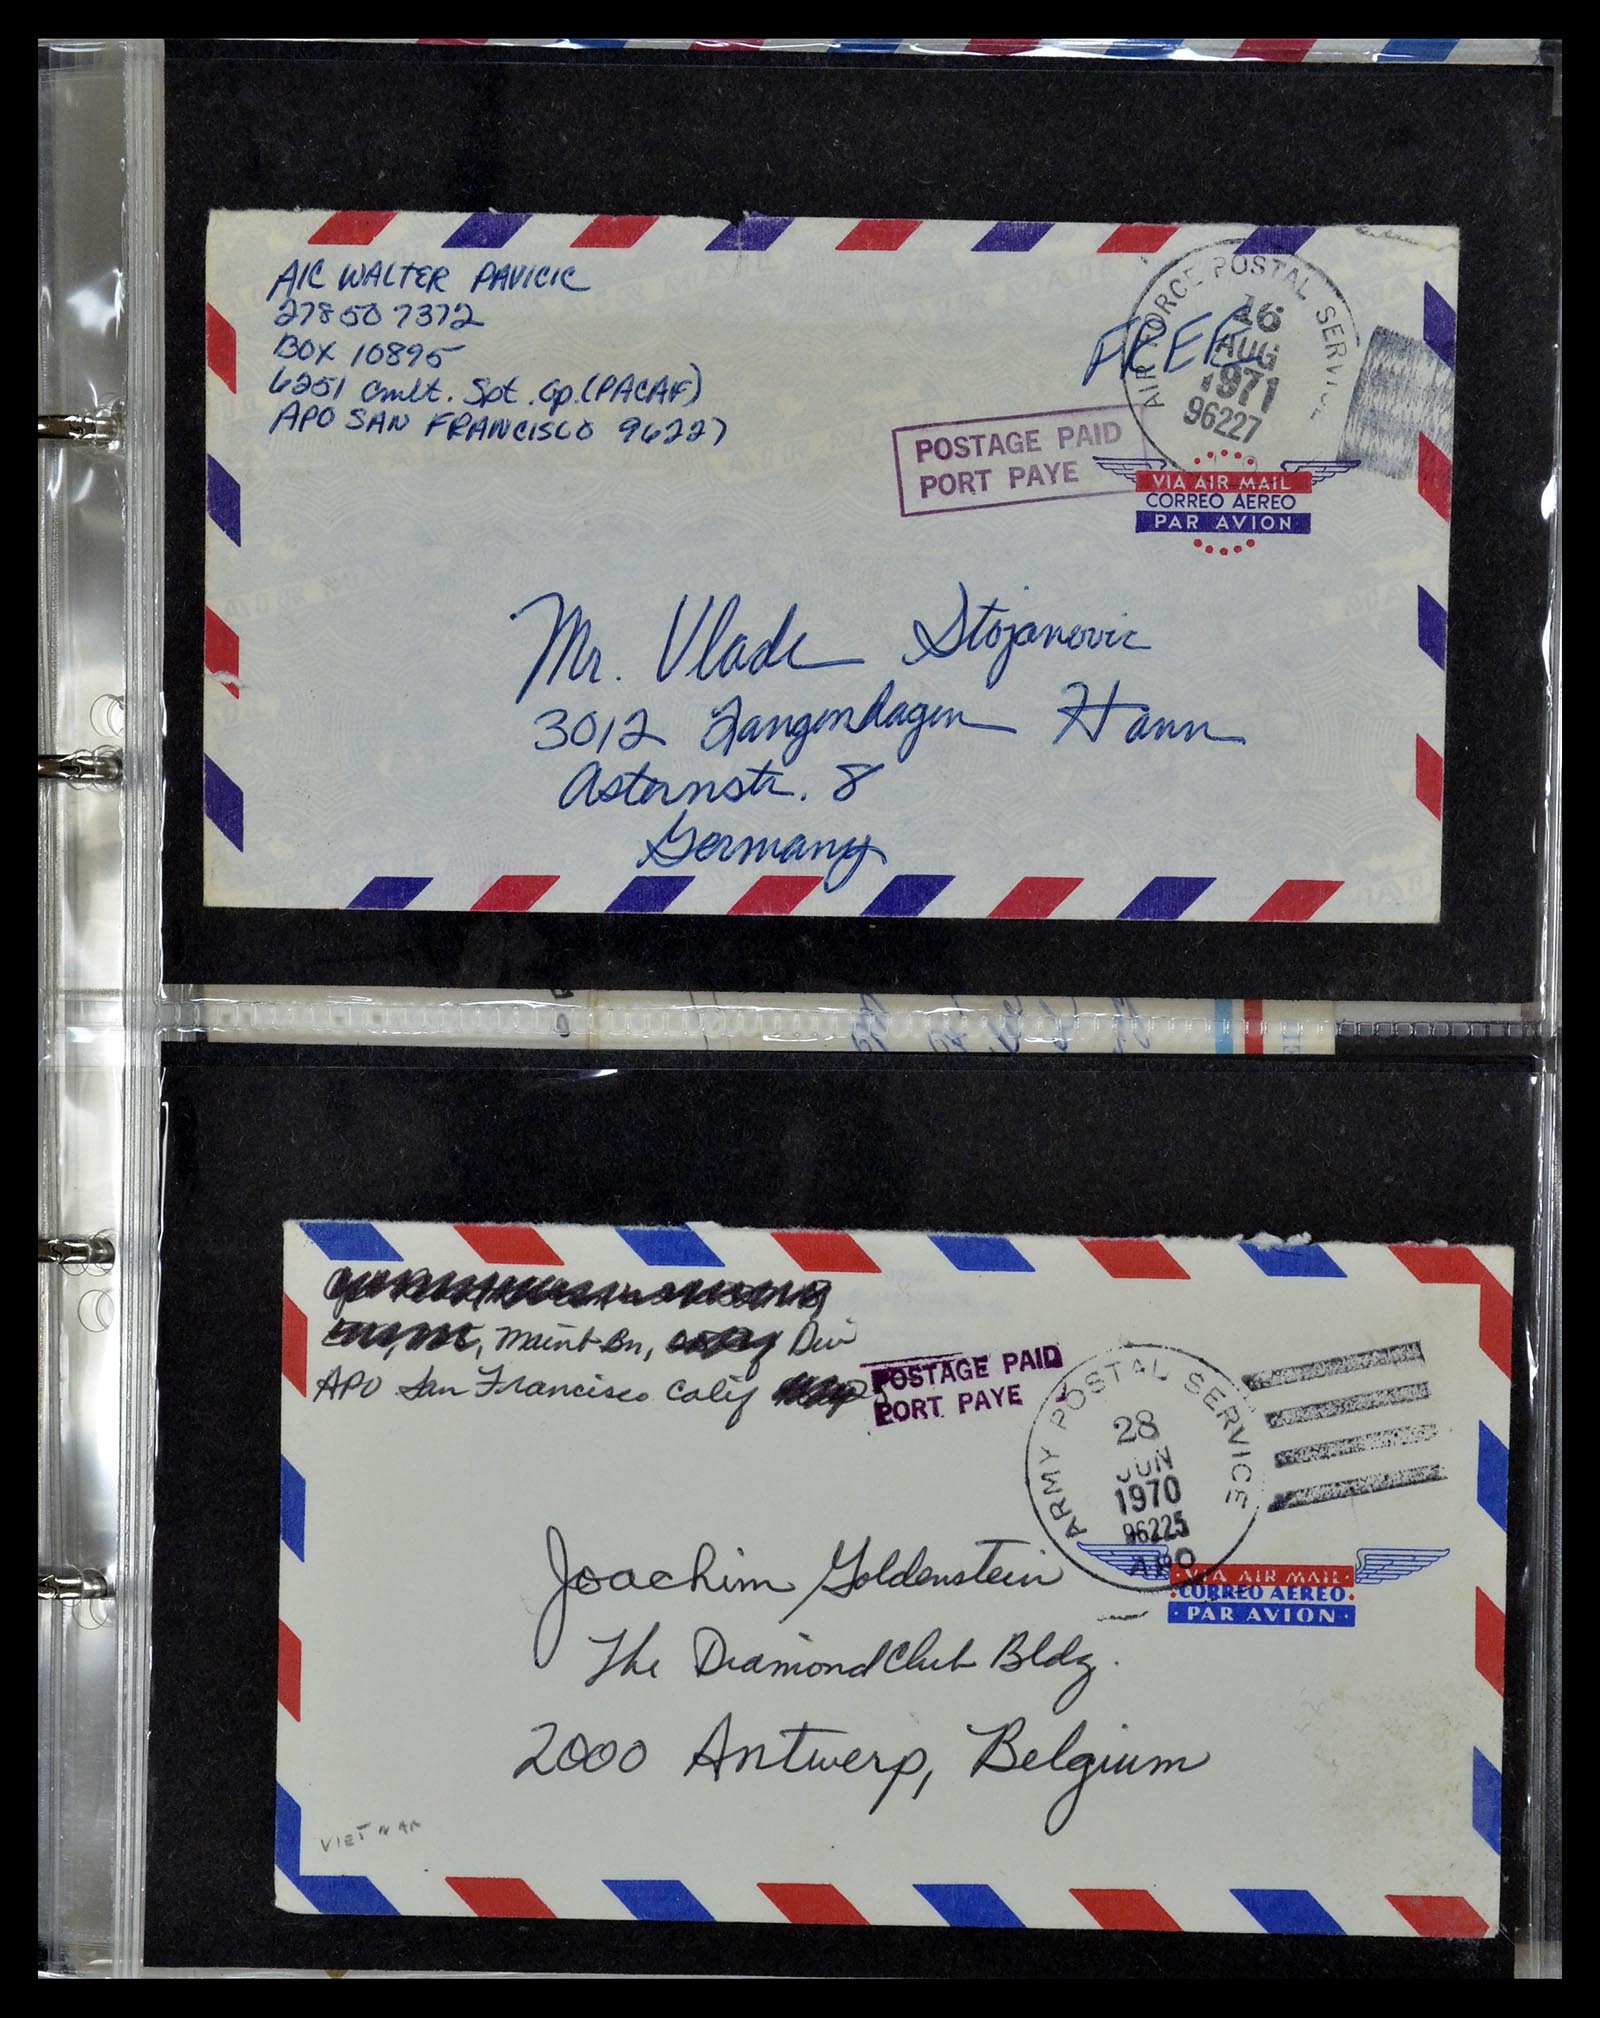 A1C WALTER PAVICIC
278 50 7372
BOX 10895
6251 Cmlt. Spt. Gp. (PACAF)
APO SAN FRANCISCO 96227
FREE
AIR FORCE POSTAL SERVICE
16
AUG
1971
96227
POSTAGE PAID
PORT PAYE
VIA AIR MAIL
CORREO AEREO
PAR AVION
Mr. Vlade Stojanovic
3012 Langenhagen Hann
Asternstr. 8
Germany
Maint Bn, Div
APO San Francisco Calif
POSTAGE PAID
PORT PAYE
ARMY POSTAL SERVICE
28
JUN
1970
96225
APO
VIA AIR MAIL
CORREO AEREO
PAR AVION
Joachim Goldenstein
The Diamond Club Bldg.
2000 Antwerp, Belgium
VIETNAM